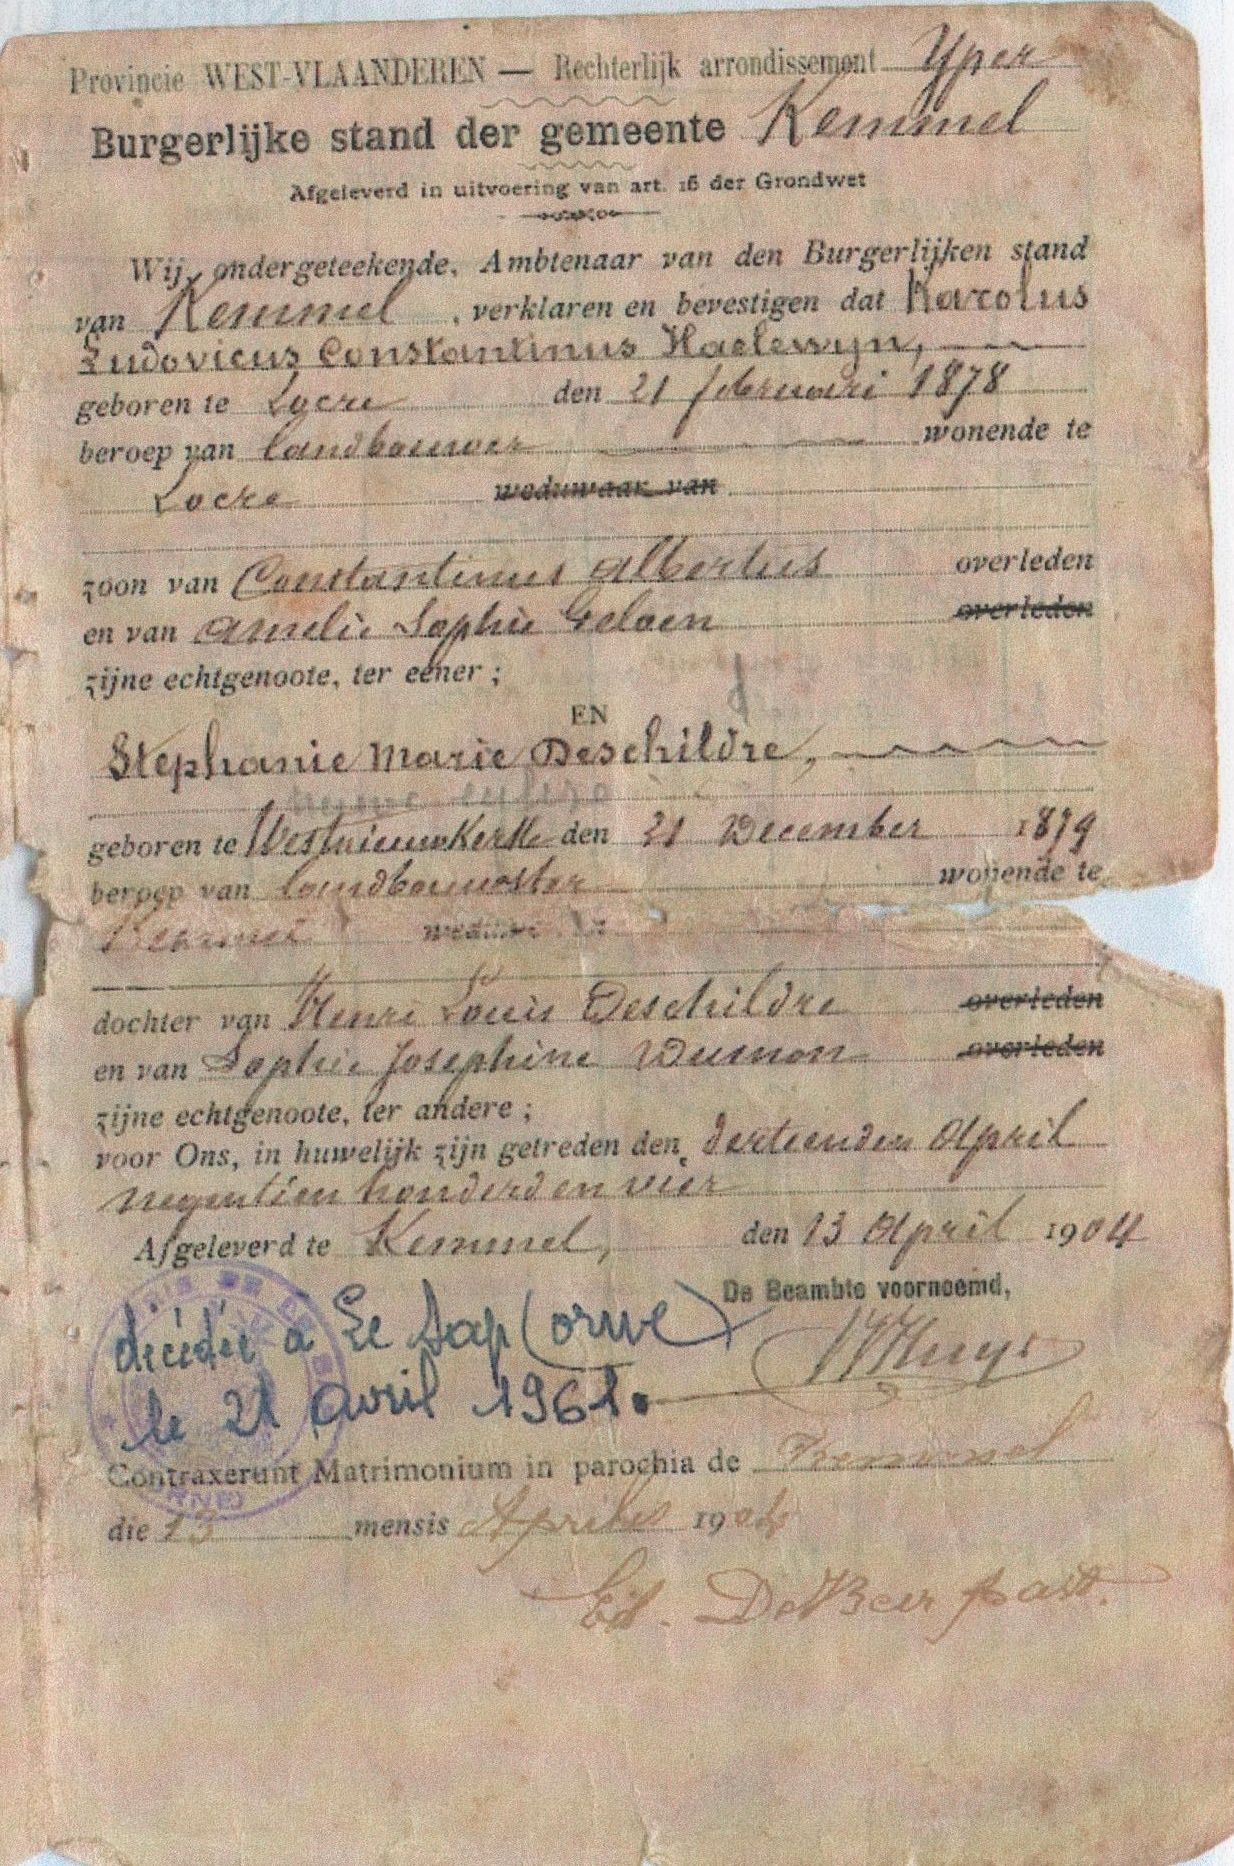 Provincie WEST-VLAANDEREN — Rechterlijk arrondissement Yper
Burgerlijke stand der gemeente Kemmel
Afgeleverd in uitvoering van art. 16 der Grondwet
Wij, ondergeteekende, Ambtenaar van den Burgerlijken stand
van Kemmel, verklaren en bevestigen dat Karolus
Ludovicus Constantinus Haelewyn,
geboren te Locre den 21 februari 1878
beroep van landbouwer wonende te
Locre weduwaar van
zoon van Constantinus Albertus overleden
en van Amelie Sophie Geloen overleden
zijne echtgenoote, ter eener ;
EN
Stephanie Marie Deschildre,
geboren te Westnieuwkerke den 21 December 1879
beroep van landbouwster wonende te
Kemmel
dochter van Henri Louis Deschildre overleden
en van Sophie Josephine Dumon overleden
zijne echtgenoote, ter andere ;
voor Ons, in huwelijk zijn getreden den dertienden April
negentien honderd en vier
Afgeleverd te Kemmel, den 13 April 1904
De Beambte voornoemd,
décédée à Le Sap (orne)
le 21 avril 1961.
Contraxerunt Matrimonium in parochia de Kemmel
die 13 mensis Aprilis 1904